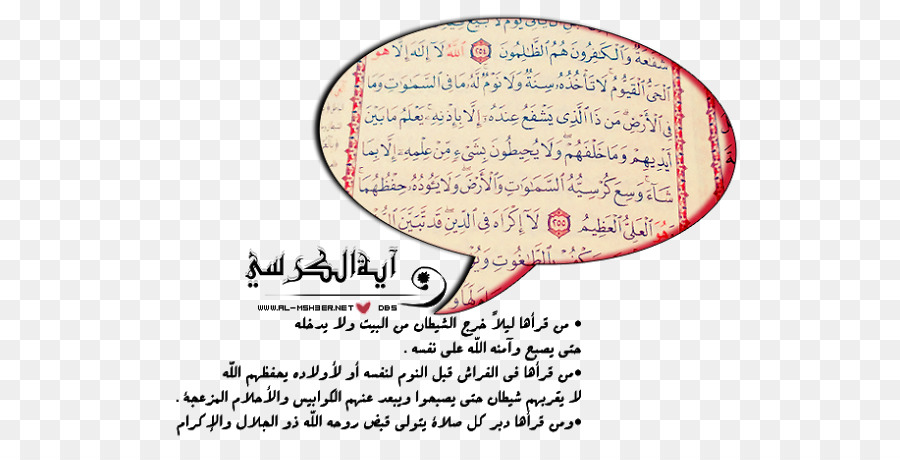 شَفَٰعَةٌ وَٱلْكَٰفِرُونَ هُمُ ٱلظَّٰلِمُونَ ٢٥٤ ٱللَّهُ لَآ إِلَٰهَ إِلَّا هُوَ
ٱلْحَىُّ ٱلْقَيُّومُ لَا تَأْخُذُهُۥ سِنَةٌ وَلَا نَوْمٌ لَّهُۥ مَا فِى ٱلسَّمَٰوَٰتِ وَمَا
فِى ٱلْأَرْضِ مَن ذَا ٱلَّذِى يَشْفَعُ عِندَهُۥٓ إِلَّا بِإِذْنِهِۦ يَعْلَمُ مَا بَيْنَ
أَيْدِيهِمْ وَمَا خَلْفَهُمْ وَلَا يُحِيطُونَ بِشَىْءٍ مِّنْ عِلْمِهِۦٓ إِلَّا بِمَا
شَآءَ وَسِعَ كُرْسِيُّهُ ٱلسَّمَٰوَٰتِ وَٱلْأَرْضَ وَلَا يَـُٔودُهُۥ حِفْظُهُمَا
وَهُوَ ٱلْعَلِىُّ ٱلْعَظِيمُ ٢٥٥ لَآ إِكْرَاهَ فِى ٱلدِّينِ قَد تَّبَيَّنَ
بِٱلطَّٰغُوتِ
آية الكرسي
WWW.AL-MSHBER.NET DBS
• من قرأها ليلاً خرج الشيطان من البيت ولا يدخله
حتى يصبح وآمنه الله على نفسه .
•من قرأها فى الفراش قبل النوم لنفسه أو لأولاده يحفظهم الله
لا يقربهم شيطان حتى يصبحوا ويبعد عنهم الكوابيس والأحلام المزعجة .
•ومن قرأها دبر كل صلاة يتولى قبض روحه الله ذو الجلال والإكرام